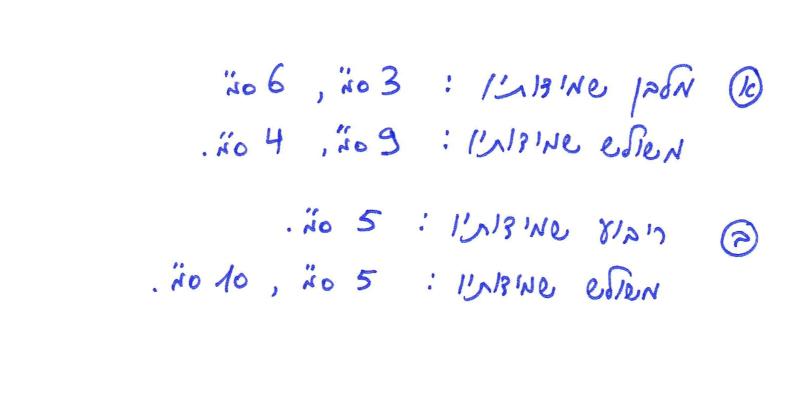 א מלבן שמידותיו : 3 ס"מ , 6 ס"מ
משולש שמידותיו : 9 ס"מ , 4 ס"מ .
ב ריבוע שמידותיו : 5 ס"מ .
משולש שמידותיו : 5 ס"מ , 10 ס"מ .